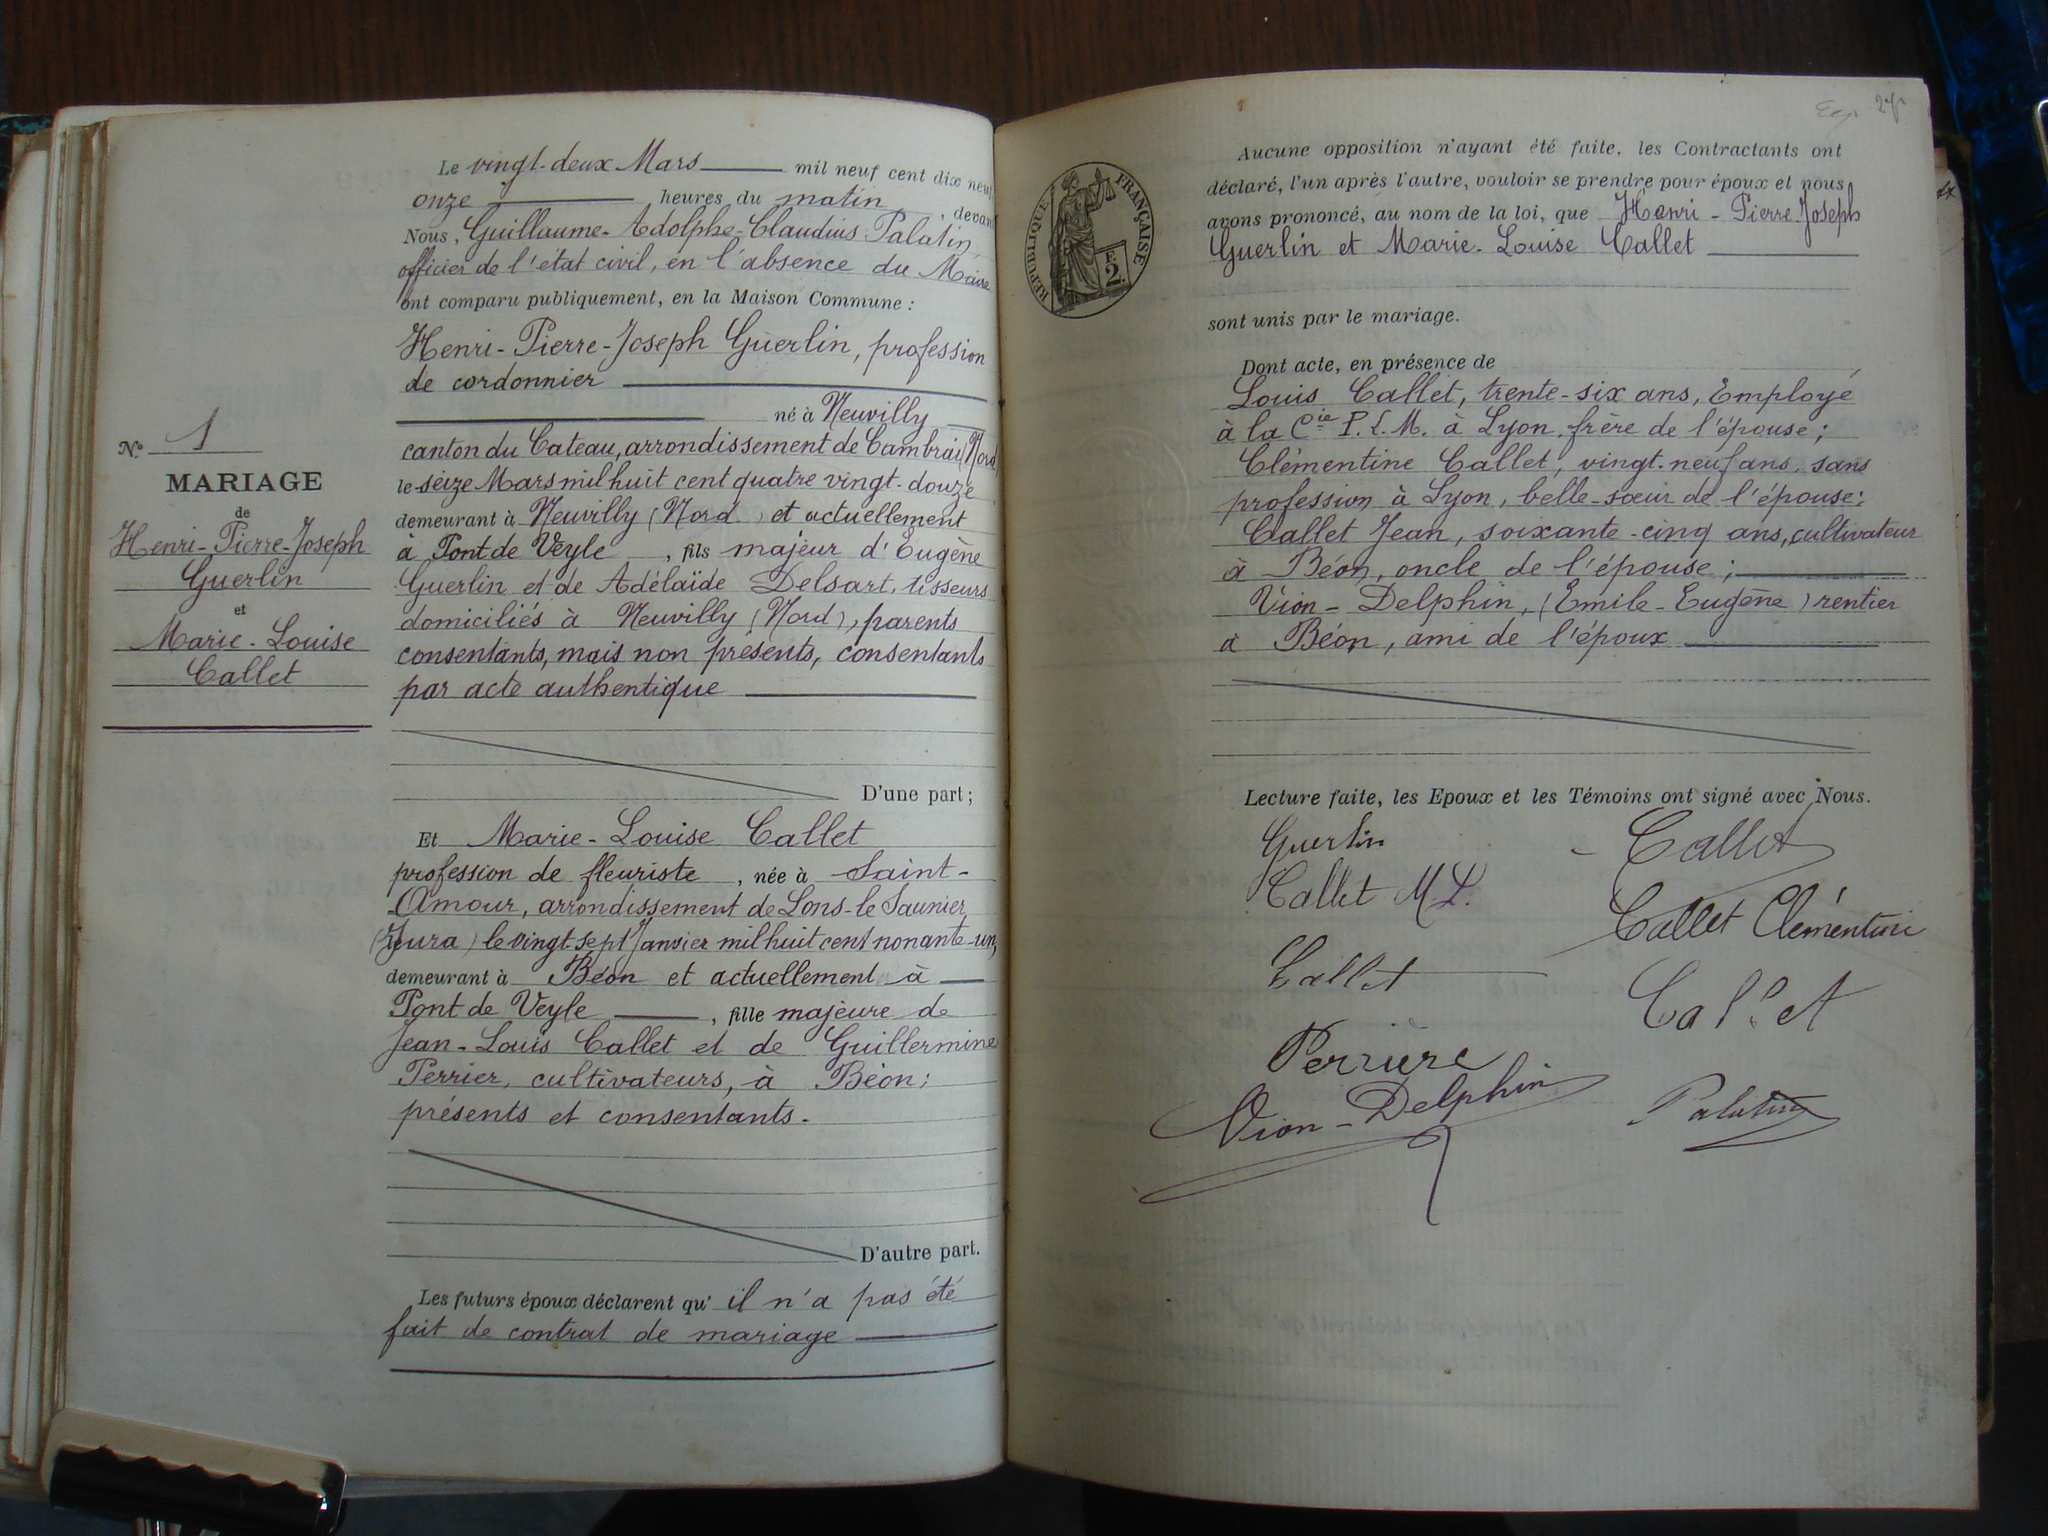 Le vingt-deux Mars mil neuf cent dix neuf
onze heures du matin, devant
Nous, Guillaume-Adolphe-Claudius Palatin
officier de l'état civil, en l'absence du Maire
ont comparu publiquement, en la Maison Commune :
Henri-Pierre-Joseph Guerlin, profession
de cordonnier
né à Neuvilly
canton du Cateau, arrondissement de Cambrai (Nord)
le seize Mars mil huit cent quatre vingt-douze
demeurant à Neuvilly (Nord) et actuellement
à Pont de Veyle, fils majeur d'Eugène
Guerlin et de Adélaïde Delsart, tisseurs
domiciliés à Neuvilly (Nord), parents
consentants, mais non présents, consentants
par acte authentique
D'une part;
N° 1
MARIAGE
de
Henri-Pierre-Joseph
Guerlin
et
Marie-Louise
Callet
Et Marie-Louise Callet
profession de fleuriste, née à Saint-
Amour, arrondissement de Lons-le Saunier
(Jura) le vingt-sept Janvier mil huit cent nonante-un,
demeurant à Béon et actuellement à
Pont de Veyle, fille majeure de
Jean-Louis Callet et de Guillermine
Perrier, cultivateurs, à Béon;
présents et consentants.
D'autre part.
Les futurs époux déclarent qu'il n'a pas été
fait de contrat de mariage
RÉPUBLIQUE FRANÇAISE
2F.
Aucune opposition n'ayant été faite, les Contractants ont
déclaré, l'un après l'autre, vouloir se prendre pour époux et nous
avons prononcé, au nom de la loi, que Henri-Pierre-Joseph
Guerlin et Marie-Louise Callet
sont unis par le mariage.
Dont acte, en présence de
Louis Callet, trente-six ans, Employé
à la Cie P.L.M. à Lyon, frère de l'épouse;
Clémentine Callet, vingt-neuf ans, sans
profession à Lyon, belle-sœur de l'épouse;
Callet Jean, soixante-cinq ans, cultivateur
à Béon, oncle de l'épouse;
Vion-Delphin, (Emile-Eugène) rentier
à Béon, ami de l'époux
Lecture faite, les Epoux et les Témoins ont signé avec Nous.
Guerlin
Callet
Callet M L.
Callet Clémentine
Callet
Callet
Perrière
Vion-Delphin
Palatin